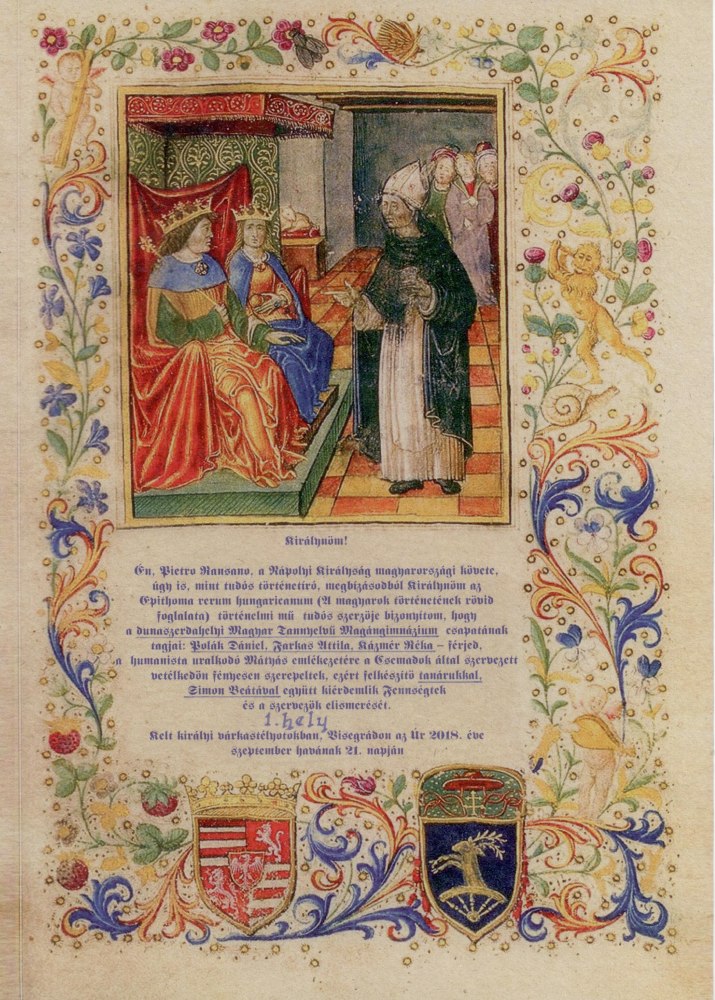 Királynöm!
Én, Pietro Ransano, a Nápolyi Királyság magyarországi követe,
úgy is, mint tudós történetíró, megbízásodból Királynöm az
Epithoma rerum hungaricanum (A magyarok történetének rövid
foglalata) történelmi mű tudós szerzője bizonyítom, hogy
a dunaszerdahelyi Magyar Tannyelvű Magángimnázium csapatának
tagjai: Polák Dániel, Farkas Attila, Kázmér Réka – férjed,
a humanista uralkodó Mátyás emlékezetére a Csemadok által szervezett
vetélkedőn fényesen szerepeltek, ezért felkészítő tanárukkal,
Simon Beátával együtt kiérdemlik Fennségtek
és a szervezők elismerését.
1. hely
Kelt királyi várkastélyotokban, Visegrádon az Úr 2018. éve
szeptember havának 21. napján